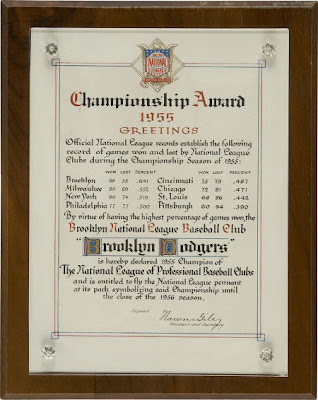 NATIONAL
Championship Award
1955
GREETINGS
Official National League records establish the following
record of games won and lost by National League
Clubs during the Championship Season of 1955:
WON LOST PERCENT WON LOST PERCENT
Brooklyn 98 55 .641 Cincinnati 75 79 .487
Milwaukee 85 69 .552 Chicago 72 81 .471
New York 80 74 .519 St. Louis 68 86 .442
Philadelphia 77 77 .500 Pittsburgh 60 94 .390
By virtue of having the highest percentage of games won, the
Brooklyn National League Baseball Club
"Brooklyn Dodgers"
is hereby declared 1955 Champion of
The National League of Professional Baseball Clubs
and is entitled to fly the National League pennant
at its park symbolizing said Championship until
the close of the 1956 season.
Signed
President and Secretary